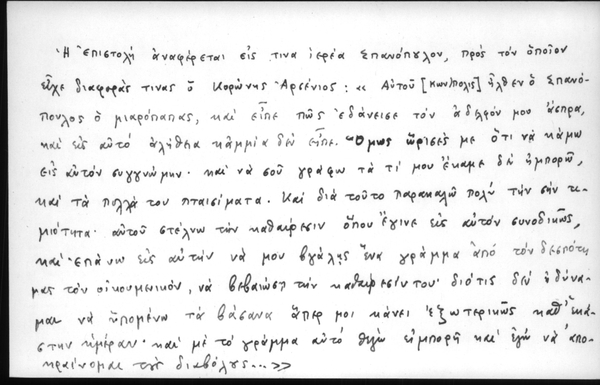 Ἡ ἐπιστολὴ ἀναφέρεται εἰς τινα ἱερέα Σπανόπουλον, πρὸς τὸν ὁποῖον
εἶχε διαφορὰς τινας ὁ Κορώνης Ἀρσένιος: « Αὐτοῦ [Κων/πολις] ἦλθεν ὁ Σπανό-
πουλος ὁ μιαρόπαπας, καὶ εἶπε πῶς ἐδάνεισε τὸν ἀδελφόν μου ἄσπρα,
καὶ εἰς αὐτό ἀλήθεια κἀμμία δὲν εἶπε. Ὅμως ὥρισές με ὅτι νὰ κάμω
εἰς αὐτόν συγγνώμην· καὶ νὰ σοῦ γράφω τὰ τί μου ἔκαμε δὲν ἠμπορῶ,
καὶ τὰ πολλά του πταισίματα. Καὶ διὰ τοῦτο παρακαλῶ πολὺ τὴν σὴν τι-
μιότητα· αὐτοῦ στέλνω τὴν καθαίρεσιν ὅπου ἔγινε εἰς αὐτόν συνοδικῶς,
καὶ ἐπάνω εἰς αὐτὴν νὰ μου βγάλῃς ἕνα γράμμα ἀπό τὸν δεσπότη
μας τὸν οἰκουμενικόν, νὰ βεβαιώσῃ τὴν καθαίρεσίν του· διότις δὲν ἐδύνα-
μαι νὰ ὑπομένω τὰ βάσανα ἅπερ μοι κάνει ἐξωτερικῶς καθ' ἑκά-
στην ἡμέραν· καὶ μὲ τὸ γράμμα αὐτό θέλω εἰμπορῆ καὶ ἐγὼ νὰ ἀπο-
κραίνομαι τοὺς διαβόλους...»